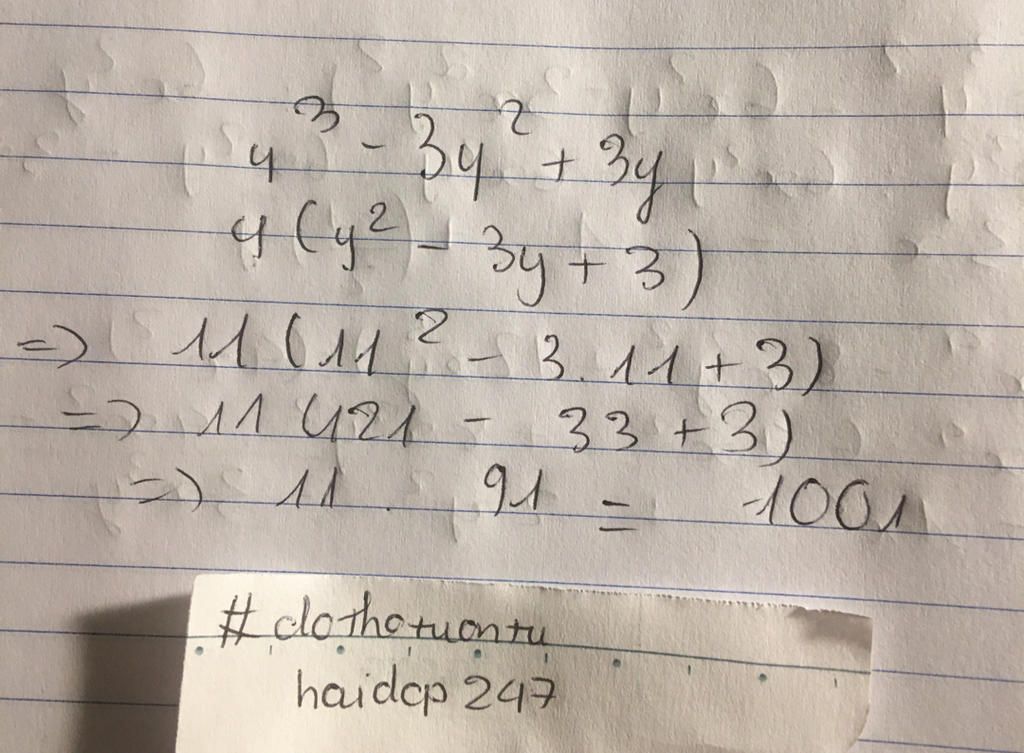 y³ - 3y² + 3y
y(y² - 3y + 3)
=> 11(11² - 3.11 + 3)
=> 11(121 - 33 + 3)
=> 11 . 91 = 1001
#dothotuontu
haidcp247